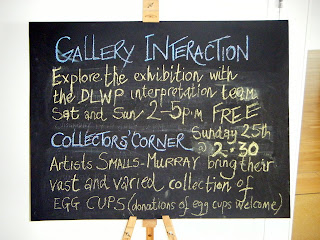 GALLERY INTERACTION
Explore the exhibition with
the DLWP interpretation team
Sat and Sun 2-5pm FREE
COLLECTORS' CORNER Sunday 25th
@ 2:30
Artists SMALLS-MURRAY bring their
vast and varied collection of
EGG CUPS (donations of egg cups welcome)